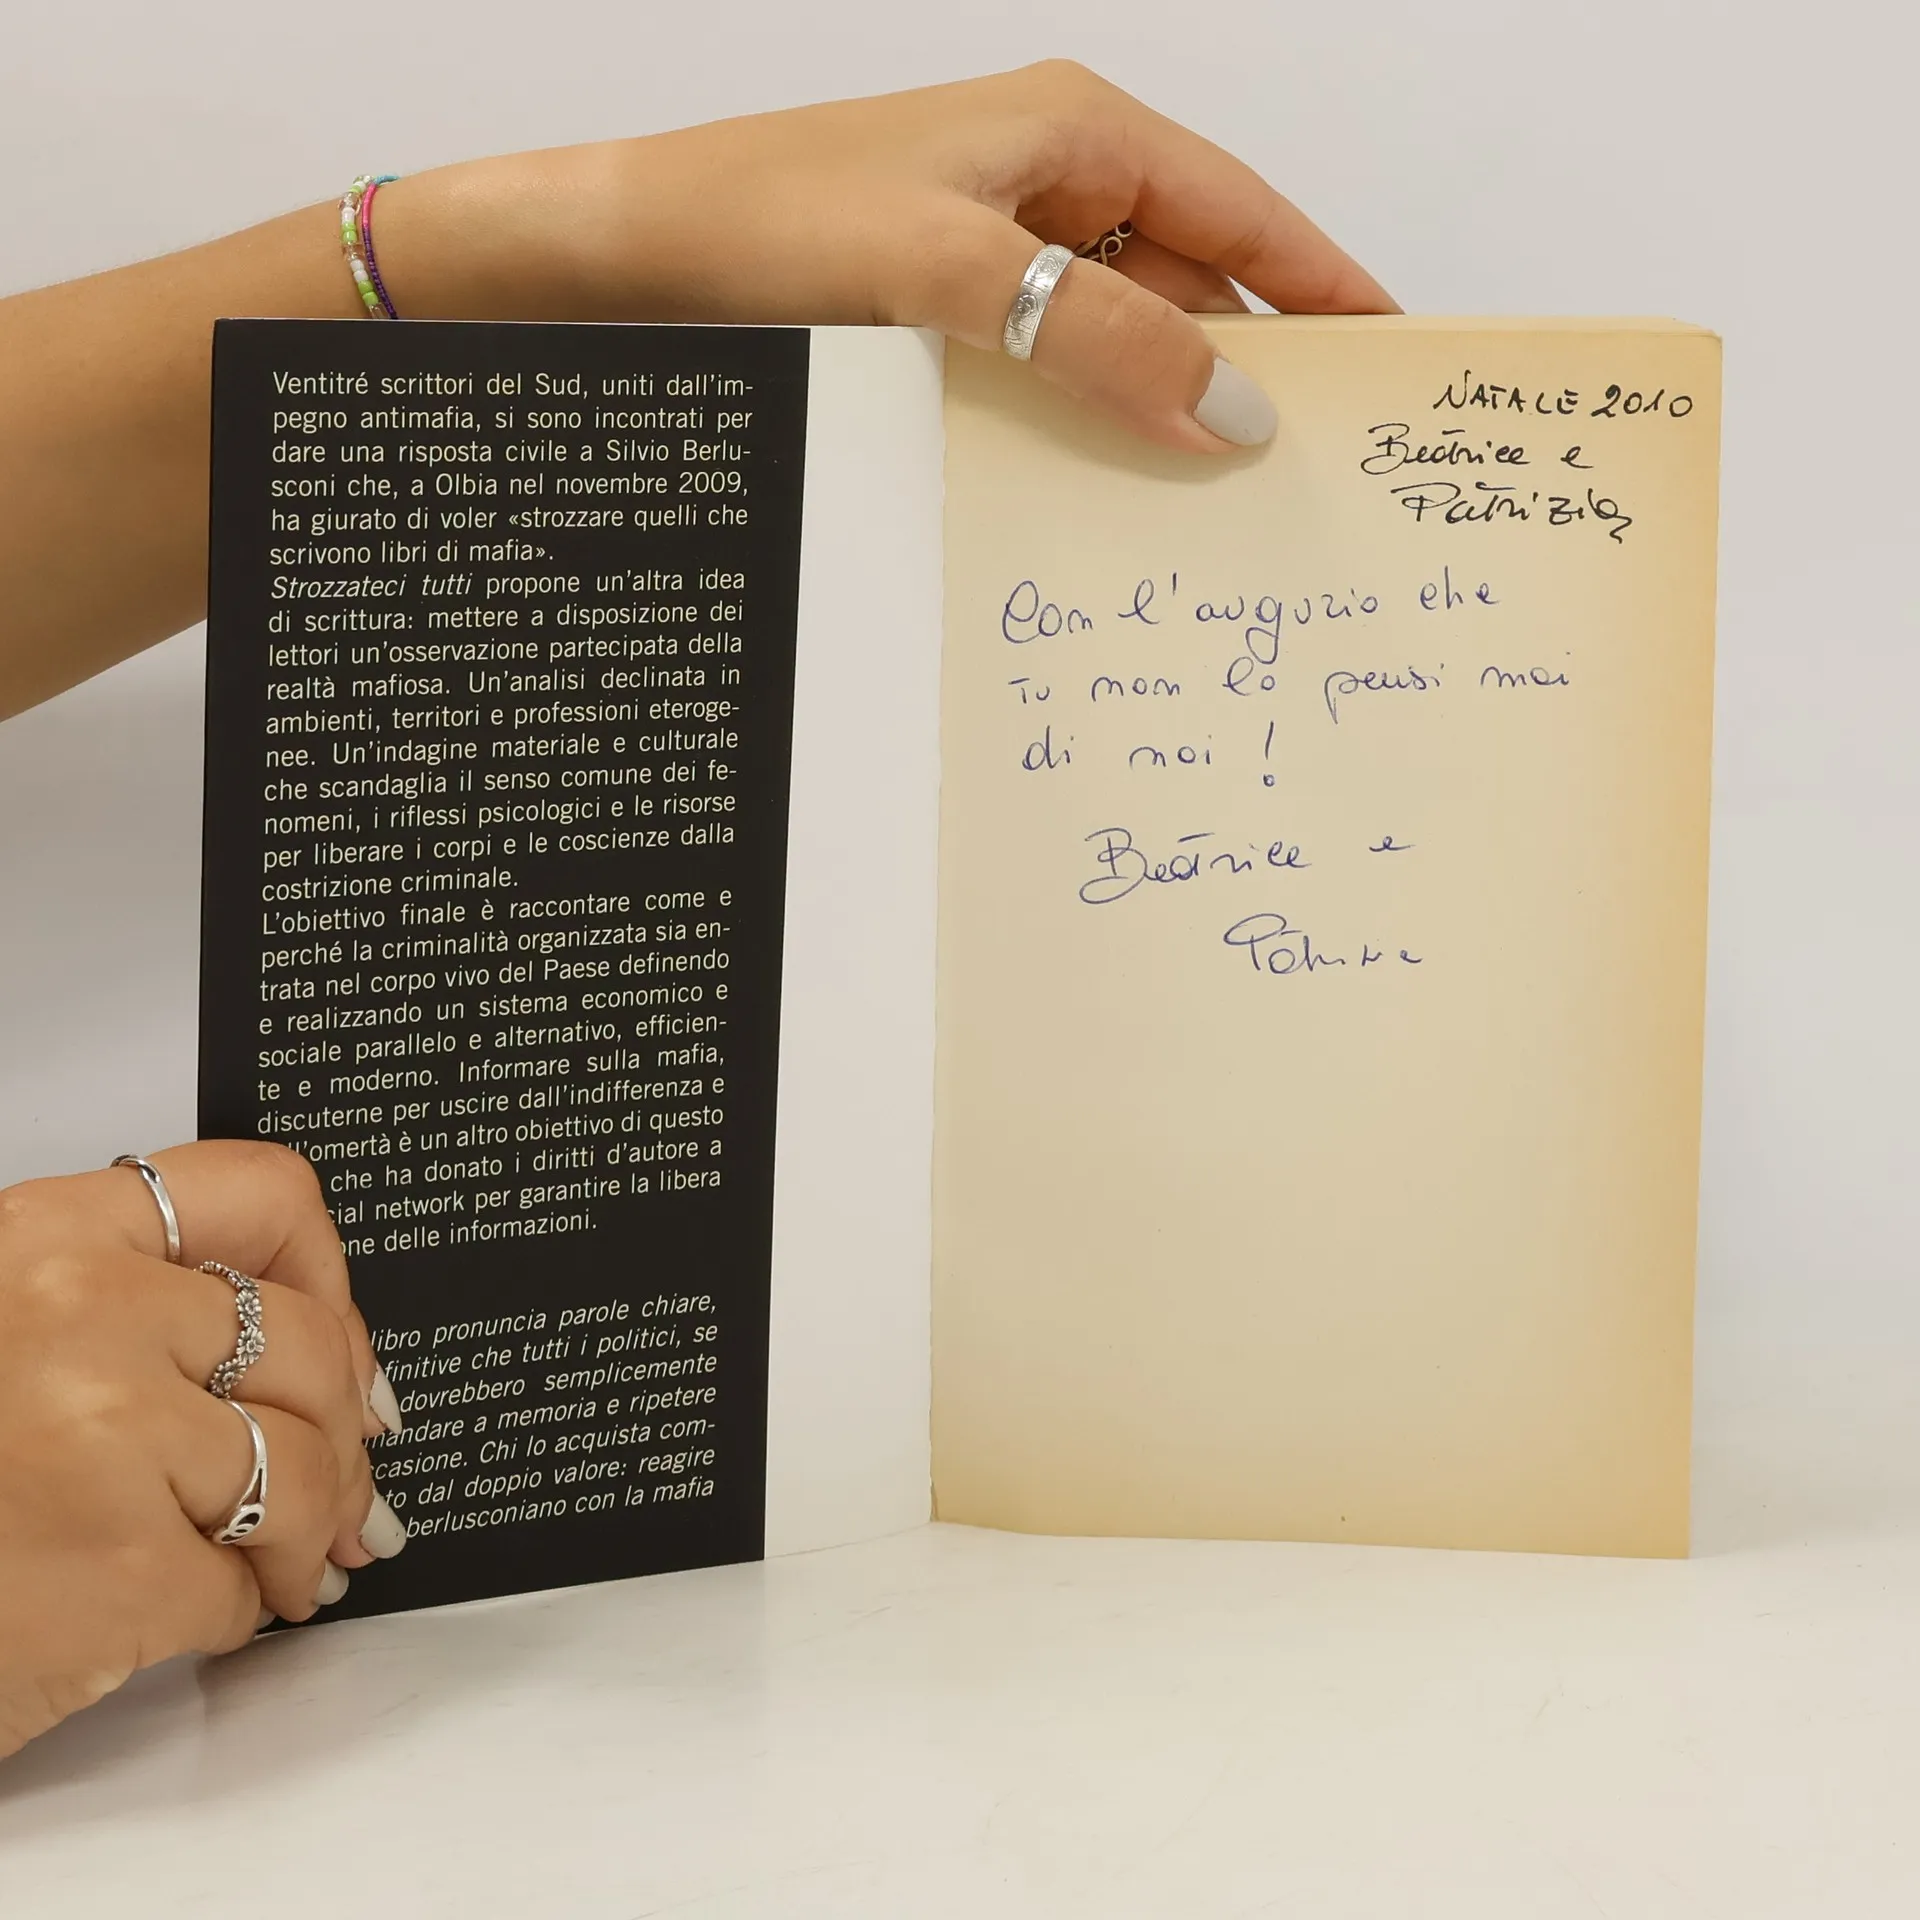 Ventitré scrittori del Sud, uniti dall'im-
pegno antimafia, si sono incontrati per
dare una risposta civile a Silvio Berlu-
sconi che, a Olbia nel novembre 2009,
ha giurato di voler «strozzare quelli che
scrivono libri di mafia».
Strozzateci tutti propone un'altra idea
di scrittura: mettere a disposizione dei
lettori un'osservazione partecipata della
realtà mafiosa. Un'analisi declinata in
ambienti, territori e professioni eteroge-
nee. Un'indagine materiale e culturale
che scandaglia il senso comune dei fe-
nomeni, i riflessi psicologici e le risorse
per liberare i corpi e le coscienze dalla
costrizione criminale.
L'obiettivo finale è raccontare come e
perché la criminalità organizzata sia en-
trata nel corpo vivo del Paese definendo
e realizzando un sistema economico e
sociale parallelo e alternativo, efficien-
te e moderno. Informare sulla mafia,
discuterne per uscire dall'indifferenza e
l'omertà è un altro obiettivo di questo
che ha donato i diritti d'autore a
network per garantire la libera
delle informazioni.
libro pronuncia parole chiare,
che tutti i politici, se
dovrebbero semplicemente
mandare a memoria e ripetere
Chi lo acquista com-
dal doppio valore: reagire
berlusconiano con la mafia
NATALE 2010
Beatrice e
Patrizia
Con l'augurio che
tu non lo pensi mai
di noi!
Beatrice e